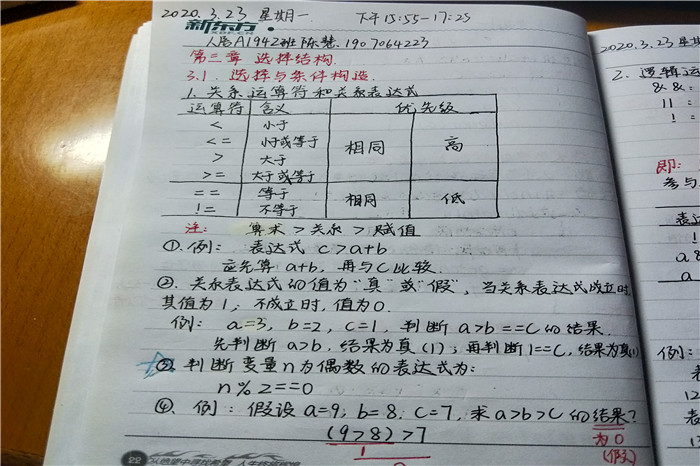 2020.3.23 星期一 下午15:55-17:25
新东方
XDF.CN
A1942班 陈慧 1907064223
第三章 选择结构.
3.1. 选择与条件构造.
1. 关系运算符和关系表达式
运算符 含义 优先级
< 小于
<= 小于或等于
> 大于
>= 大于或等于
相同 高
== 等于
!= 不等于
相同 低
注: 算术 > 关系 > 赋值
①.例: 表达式 c>a+b
应先算 a+b, 再与c比较.
②.关系表达式的值为"真"或"假", 当关系表达式成立时
其值为1; 不成立时, 值为0.
例: a=3, b=2, c=1, 判断 a>b==c的结果.
先判断 a>b, 结果为真(1); 再判断1==c, 结果为真(1)
③.判断变量n为偶数的表达式为:
n%2==0
④. 例: 假设a=9; b=8; c=7, 求a>b>c的结果?
(9>8)>7
1
为0
(假)
22
2020.3.23 星
2. 逻辑运
&&:
||:
!:
即:
参与
表
!
a &
a
例:
12